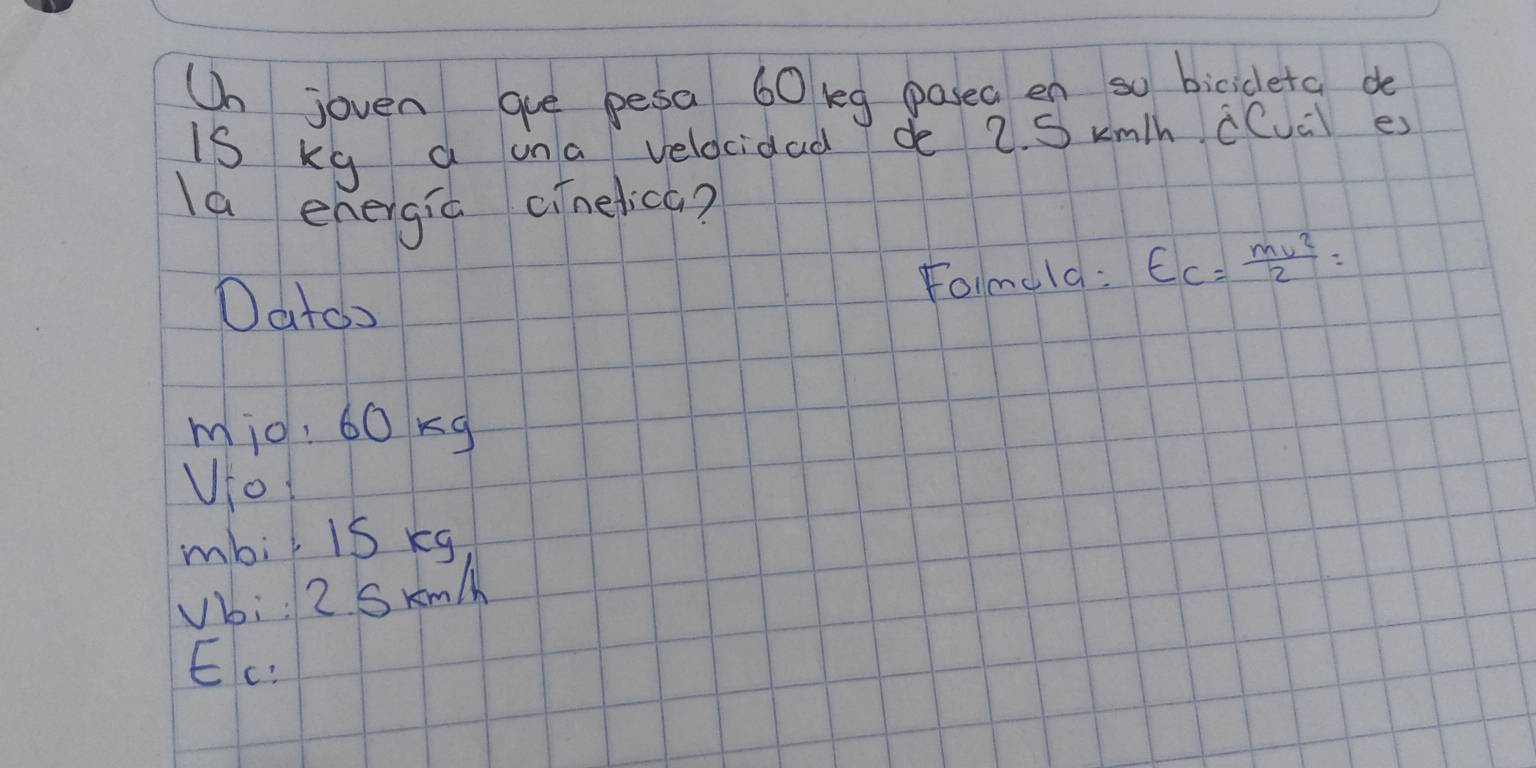 Un joven que pesa 60 kg pasea en su bicicleta de
15 kg a una velocidad de 2.5 km/h. ¿Cuál es
la energía cinetica?
Formula: Ec= mv²/2 =
Datos
mjo: 60 kg
Vjo:
mbi: 15 kg
Vbi: 2.5 km/h
Ec: